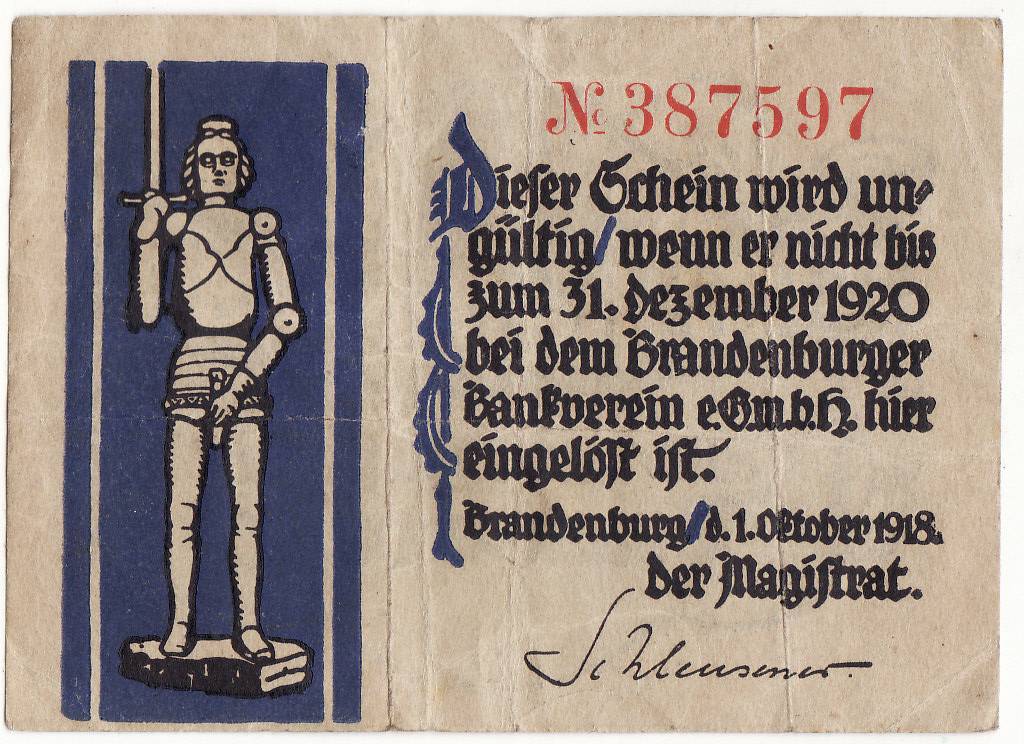 № 387597
Dieser Schein wird un-
gültig/ wenn er nicht bis
zum 31. Dezember 1920
bei dem Brandenburger
Bankverein e.G.m.b.H. hier
eingelöst ist.
Brandenburg/ d. 1. Oktober 1918.
Der Magistrat.
Schleusener.